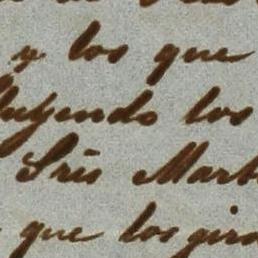 y los que
luyendo los
Sres Mart
que los gira